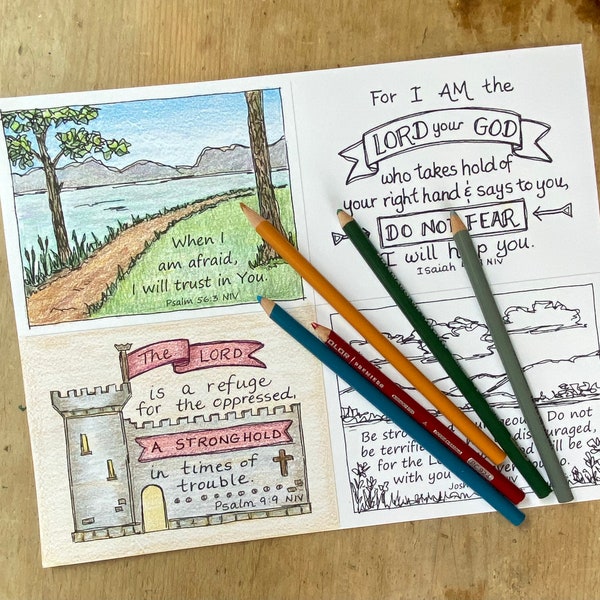 When I
am afraid,
I will trust in You.
Psalm 56:3 NIV
For I AM the
LORD your GOD
who takes hold of
your right hand & says to you,
DO NOT FEAR
I will help you.
Isaiah NIV
The LORD
is a refuge
for the oppressed,
A STRONGHOLD
in times of
trouble.
Psalm 9:9 NIV
Do not
Be
be terrified
for the will be
with you
PREMIER